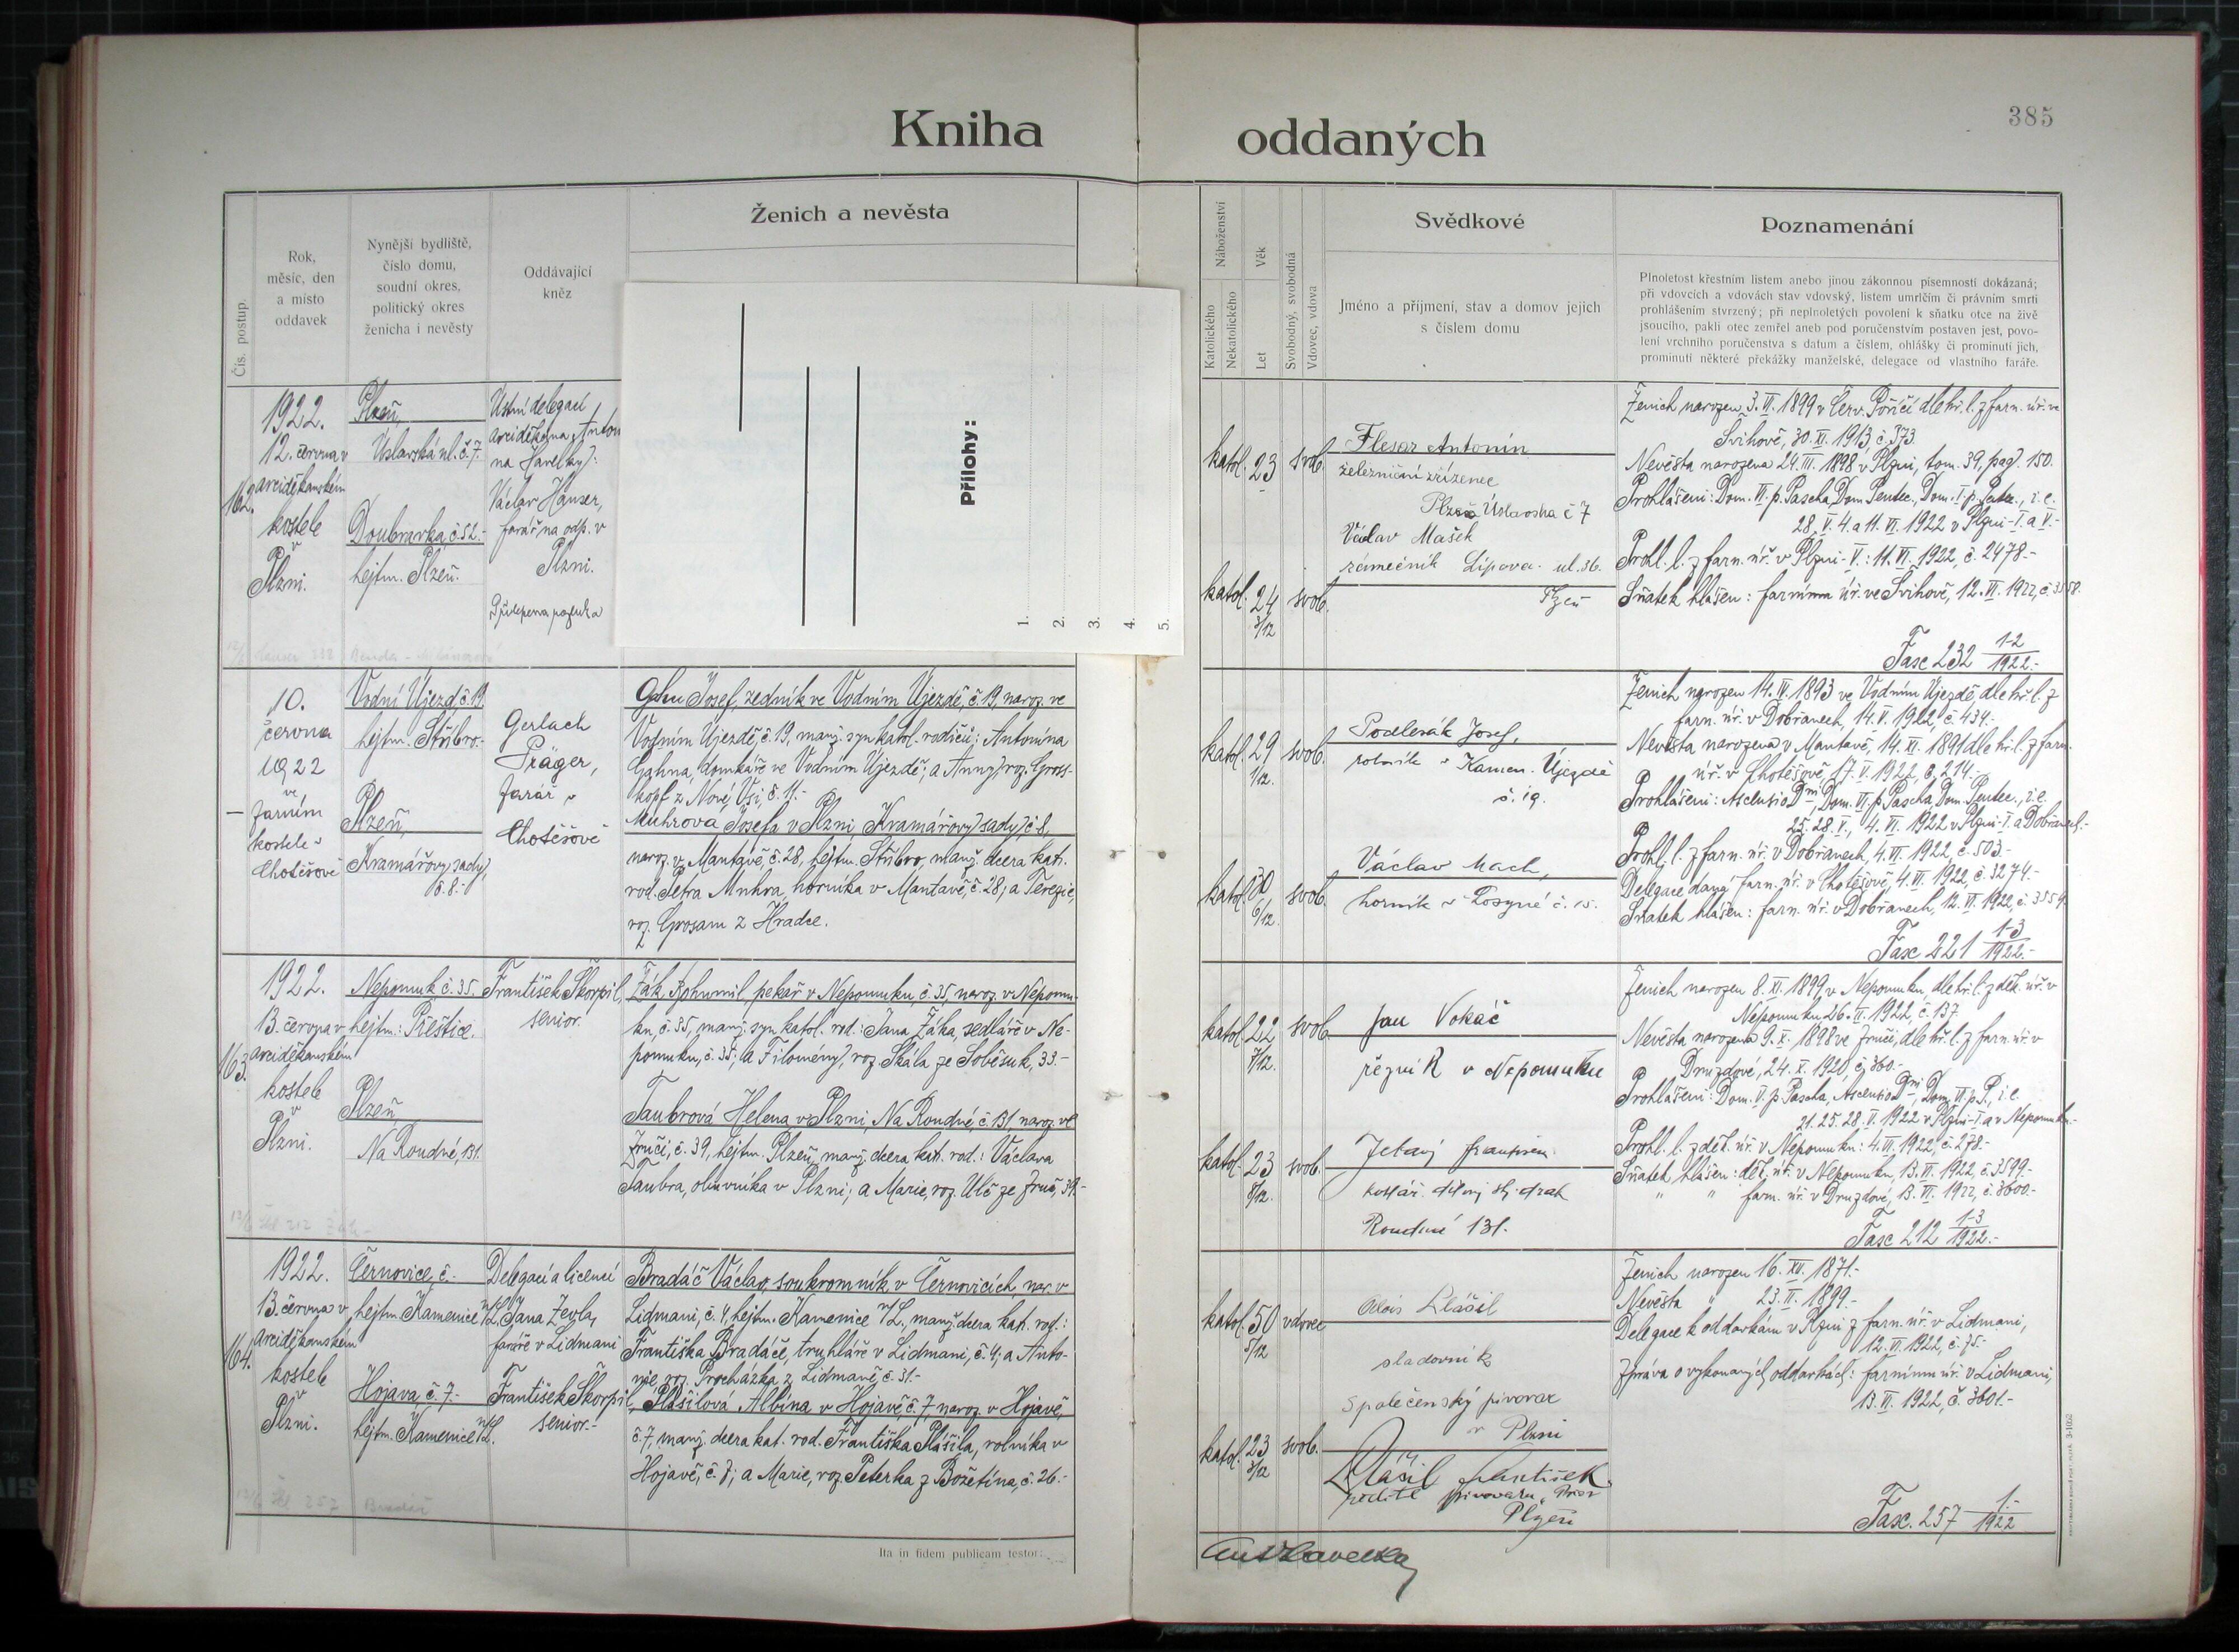 385
Kniha oddaných
Čís. postup.
Rok,
měsíc, den
a místo
oddavek
Nynější bydliště,
číslo domu,
soudní okres,
politický okres
ženicha i nevěsty
Oddávající
kněz
Ženich a nevěsta
Náboženství
Katolického
Nekatolického
Věk
Let
Svobodný, svobodná
Vdovec, vdova
Svědkové
Jméno a příjmení, stav a domov jejich
s číslem domu
Poznamenání
Plnoletost křestním listem anebo jinou zákonnou písemností dokázaná;
při vdovcích a vdovách stav vdovský, listem umrlčím či právním smrti
prohlášením stvrzený; při neplnoletých povolení k sňatku otce na živě
jsoucího, pakli otec zemřel aneb pod poručenstvím postaven jest, povo-
lení vrchního poručenstva s datum a číslem, ohlášky či prominutí jich,
prominutí některé překážky manželské, delegace od vlastního faráře.
Přílohy:
1.
2.
3.
4.
5.
162.
1922.
12. června v
arciděkanském
kostele
v
Plzni.
Plzeň,
Úslavská ul. č. 7.
Doubravka, č. 52.-
hejtm. Plzeň.
Ústní delegací
arciděkana Anton
na Havelky:
Václav Hauser,
farář na odp. v
Plzni.
katol. 23 svob.
katol. 24 3/12 svob.
Flesar Antonín
železniční zřízenec
Plzeň Úslavska č 7
Václav Mašek
zámečník Lipova ul. 36.
Plzeň
Ženich narozen 3. VI. 1899 v Červ. Poříčí dle kř. l. z farn. úř. ve
Švihově, 30. XI. 1913, č. 373.
Nevěsta narozena 24. III. 1898 v Plzni, tom. 39, pag. 150.
Prohlášeni: Dom. VI. p. Pascha, Dom. Pentec., Dom. I. p. Pentec., i. e.
28. V. 4. a 11. VI. 1922 v Plzni - I. a V.-
Prohl. l. z farn. úř. v Plzni - V.: 11. VI. 1922, č. 2478.-
Sňatek hlášen: farnímu úř. ve Švihově, 12. VI. 1922, č. 3558.
Fasc 232 1-2/1922.-
10.
června
1922
ve
farním
kostele v
Chotěšově
Vodní Újezd č. 19
hejtm. Stříbro.-
Plzeň,
Kramářovy sady,
č. 8.-
Gerlach
Präger,
farář v
Chotěšově
Gahn Josef, zedník ve Vodním Újezdě, č. 19, naroz. ve
Vodním Újezdě, č. 19, manž. syn katol. rodičů: Antonína
Gahna, domkáře ve Vodním Újezdě; a Anny, roz. Gross-
kopf z Nové Vsi, č. 11.-
Muhrová Josefa v Plzni, Kramářovy sady, č. 8,
naroz. v Mantavě, č. 28, hejtm. Stříbro, manž. dcera kat.
rod. Petra Muhra, horníka v Mantavě, č. 28; a Terezie,
roz. Grosam z Hradce.
katol. 29 1/12. svob.
katol. 30 6/12. svob.
Podlesák Josef,
rolník v Kamen. Újezdě
č. 19.
Václav Mach,
horník v Losyné č. 15.
Ženich narozen 14. IV. 1893 ve Vodním Újezdě, dle kř. l. z
farn. úř. v Dobřanech, 14. V. 1922, č. 434.-
Nevěsta narozena v Mantavě, 14. XI. 1891 dle kř. l. z farn.
úř. v Chotěšově, 17. V. 1922, č. 214.-
Prohlášeni: Ascensio Dni, Dom. VI. p. Pascha, Dom. Pentec., i. e.
25. 28. V., 4. VI. 1922 v Plzni - I. a Dobřanech.-
Prohl. l. z farn. úř. v Dobřanech, 4. VI. 1922, č. 503.-
Delegace daná farn. úř. v Chotěšově, 4. VI. 1922, č. 3274.-
Sňatek hlášen: farn. úř. v Dobřanech, 12. VI. 1922, č. 3559.
Fasc 221 1-3/1922.-
163.
1922.
13. června v
arciděkanském
kostele
v
Plzni.
Nepomuk, č. 35.
hejtm.: Přeštice.
Plzeň
Na Roudné, 131.
František Škorpil,
senior.
Žák Bohumil, pekař v Nepomuku, č. 35, naroz. v Nepomu-
ku, č. 35, manž. syn katol. rod.: Jana Žáka, sedláře v Ne-
pomuku, č. 35; a Filomény, roz. Skála ze Soběsuk, 33.-
Taubrová Helena v Plzni, Na Roudné, č. 131, naroz. ve
Zruči, č. 39, hejtm. Plzeň, manž. dcera kat. rod.: Václava
Taubra, obuvníka v Plzni; a Marie, roz. Ulč ze Zruč, 39.-
katol. 22 7/12. svob.
katol. 23 8/12. svob.
Jan Vokáč
řezník v Nepomuku
kotlář
Roudné 131.
Ženich narozen 8. XI. 1899, v Nepomuku, dle kř. l. z děk. úř. v
Nepomuku 26. II. 1922, č. 137.
Nevěsta narozena 9. X. 1898 ve Zruči, dle kř. l. z farn. úř. v
Druzdové, 24. X. 1920, č. 360.-
Prohlášeni: Dom. V. p. Pascha, Ascensio Dni, Dom. VI. p. P., i. e.
21. 25. 28. V. 1922 v Plzni - I. a v Nepomuku.-
Prohl. l. z děk. úř. v Nepomuku: 4. VI. 1922, č. 278.-
Sňatek hlášen: děk. úř. v Nepomuku, 13. VI. 1922, č. 3599.-
" " farn. úř. v Druzdové, 13. VI. 1922, č. 3600.-
Fasc 212 1-3/1922.-
164.
1922.
13. června v
arciděkanském
kostele
v
Plzni.
Černovice, č.-
hejtm. Kamenice n/L.
Hojava, č. 7.-
hejtm. Kamenice n/L.
Delegací a licencí
Jana Zevla,
faráře v Lidmani
František Škorpil,
senior.-
Bradáč Václav, soukromník v Černovicích, nar. v
Lidmani, č. 4, hejtm. Kamenice n/L., manž. dcera kat. rod.:
Františka Bradáče, truhláře v Lidmani, č. 4; a Anto-
nie roz. Procházka z Lidmaně, č. 31.-
Plášilová Albína v Hojavě, č. 7, naroz. v Hojavě,
č. 7, manž. dcera kat. rod. Františka Plášila, rolníka v
Hojavě, č. 7; a Marie, roz. Peterka z Božetína, č. 26.-
katol. 50 5/12 vdovec
katol. 23 3/12 svob.
Alois Plášil
sladovník
Společenský pivovar
v Plzni
Plášil František
ředitel pivovaru Prior
Plzeň
Ženich narozen 16. XII. 1871.-
Nevěsta " 23. II. 1899.-
Delegace k oddavkám v Plzni z farn. úř. v Lidmani,
12. VI. 1922, č. 75.-
Zpráva o vykonaných oddavkách: farnímu úř. v Lidmani,
13. VI. 1922, č. 3601.-
Fasc. 257 1.-/1922
Ita in fidem publicam testor:
Ant Havelka